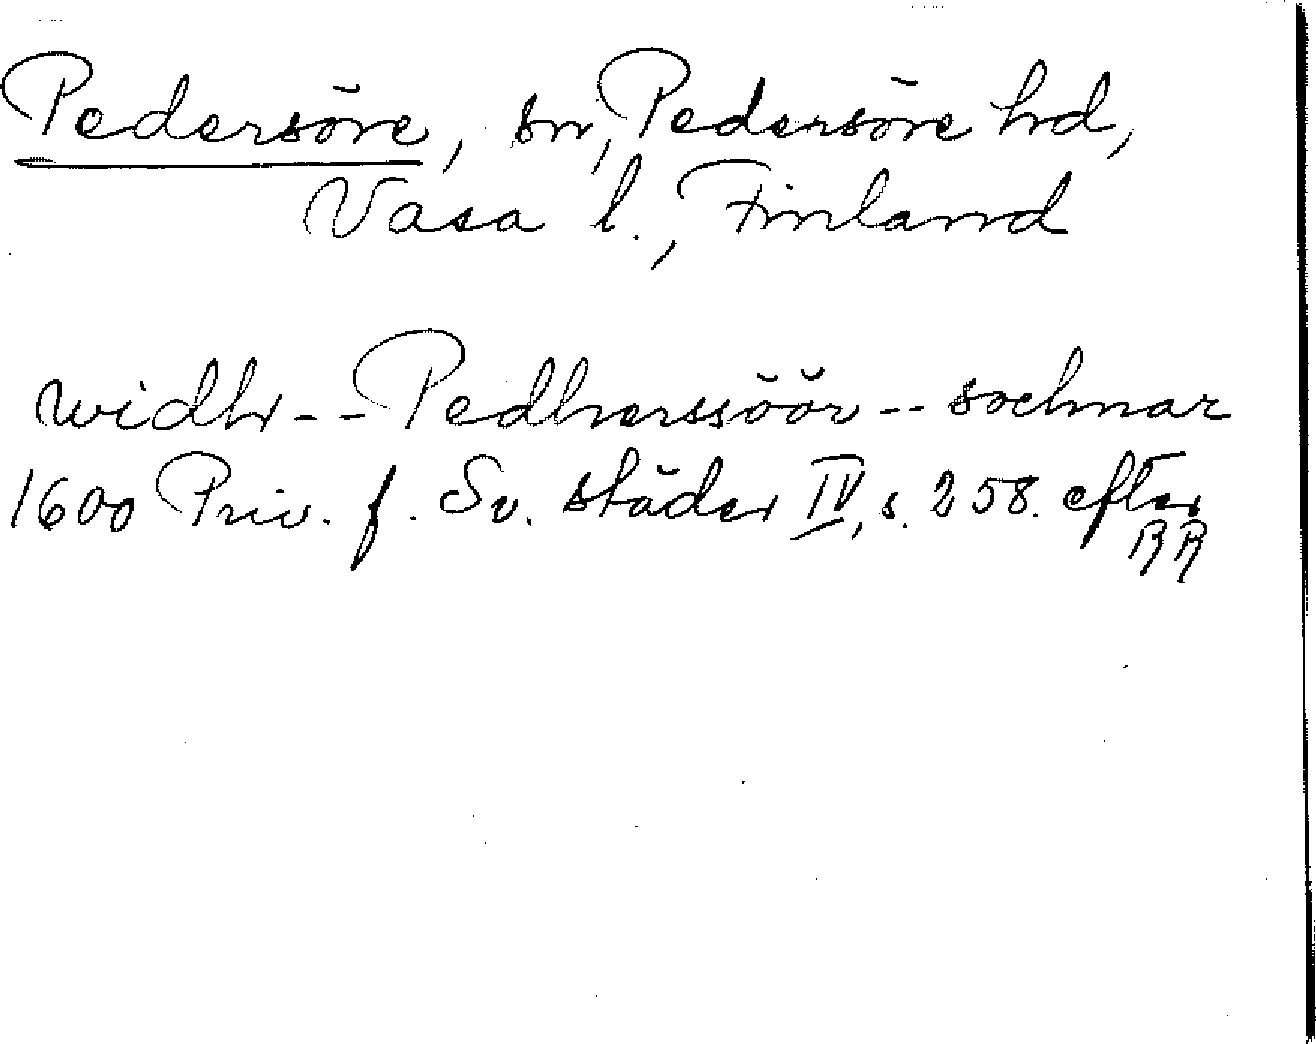 Pedersöre, sn, Pedersöre hd,
Vasa l., Finland
widh -- Pedherssöör -- sochnar
1600 Priv. f. Sv. städer IV, s. 258. efter
RR